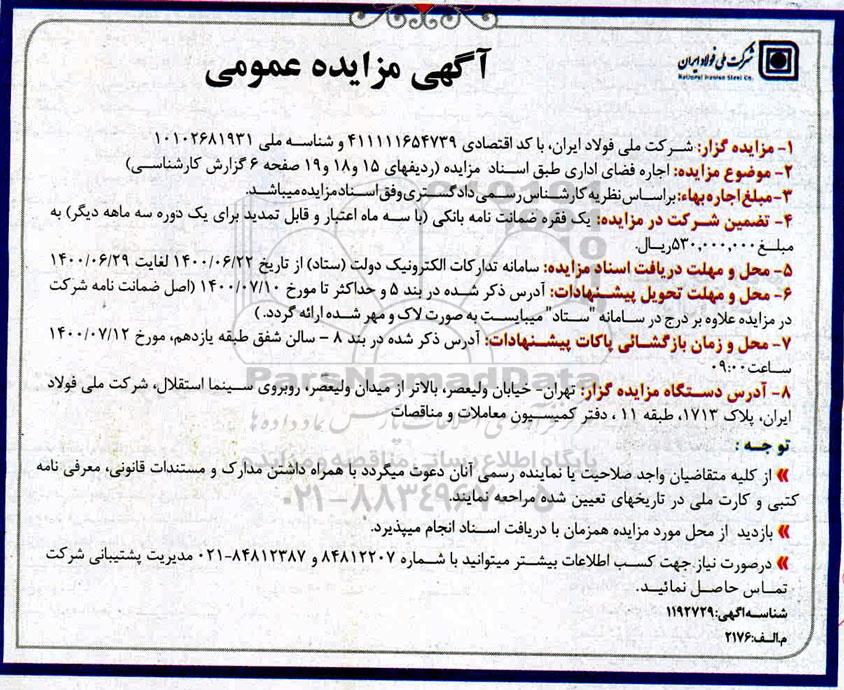 شرکت ملی فولاد ایران
National Iranian Steel Co.
آگهی مزایده عمومی
۱- مزایده گزار: شرکت ملی فولاد ایران، با کد اقتصادی ۴۱۱۱۱۱۶۵۴۷۳۹ و شناسه ملی ۱۰۱۰۲۶۸۱۹۳۱
۲- موضوع مزایده: اجاره فضای اداری طبق اسناد مزایده (ردیفهای ۱۵ و۱۸ و۱۹ صفحه ۶ گزارش کارشناسی)
۳- مبلغ اجاره بهاء: براساس نظریه کارشناس رسمی دادگستری وفق اسناد مزایده میباشد.
۴- تضمین شرکت در مزایده: یک فقره ضمانت نامه بانکی (با سه ماه اعتبار و قابل تمدید برای یک دوره سه ماهه دیگر) به
مبلغ ۵۳۰,۰۰۰,۰۰۰ ریال.
۵- محل و مهلت دریافت اسناد مزایده: سامانه تدارکات الکترونیک دولت (ستاد) از تاریخ ۱۴۰۰/۰۶/۲۲ لغایت ۱۴۰۰/۰۶/۲۹
۶- محل و مهلت تحویل پیشنهادات: آدرس ذکر شده در بند ۵ و حداکثر تا مورخ ۱۴۰۰/۰۷/۱۰ (اصل ضمانت نامه شرکت
در مزایده علاوه بر درج در سامانه "ستاد" میبایست به صورت لاک و مهر شده ارائه گردد.)
۷- محل و زمان بازگشائی پاکات پیشنهادات: آدرس ذکر شده در بند ۸ – سالن شفق طبقه یازدهم، مورخ ۱۴۰۰/۰۷/۱۲
ساعت ۰۹:۰۰
۸- آدرس دستگاه مزایده گزار: تهران- خیابان ولیعصر، بالاتر از میدان ولیعصر، روبروی سینما استقلال، شرکت ملی فولاد
ایران، پلاک ۱۷۱۳، طبقه ۱۱ ، دفتر کمیسیون معاملات و مناقصات
توجه :
» از کلیه متقاضیان واجد صلاحیت یا نماینده رسمی آنان دعوت میگردد با همراه داشتن مدارک و مستندات قانونی، معرفی نامه
کتبی و کارت ملی در تاریخهای تعیین شده مراجعه نمایند.
» بازدید از محل مورد مزایده همزمان با دریافت اسناد انجام میپذیرد.
» درصورت نیاز جهت کسب اطلاعات بیشتر میتوانید با شماره ۸۴۸۱۲۲۰۷ و ۸۴۸۱۲۳۸۷-۰۲۱ مدیریت پشتیبانی شرکت
تماس حاصل نمائید.
شناسه اگهی:۱۱۹۲۷۲۹
م.الف:۲۱۷۶
ParsNamadData
پایگاه اطلاع رسانی مناقصه و مزایده
۰۲۱-۸۸۳۴۹۶۷۰-۵